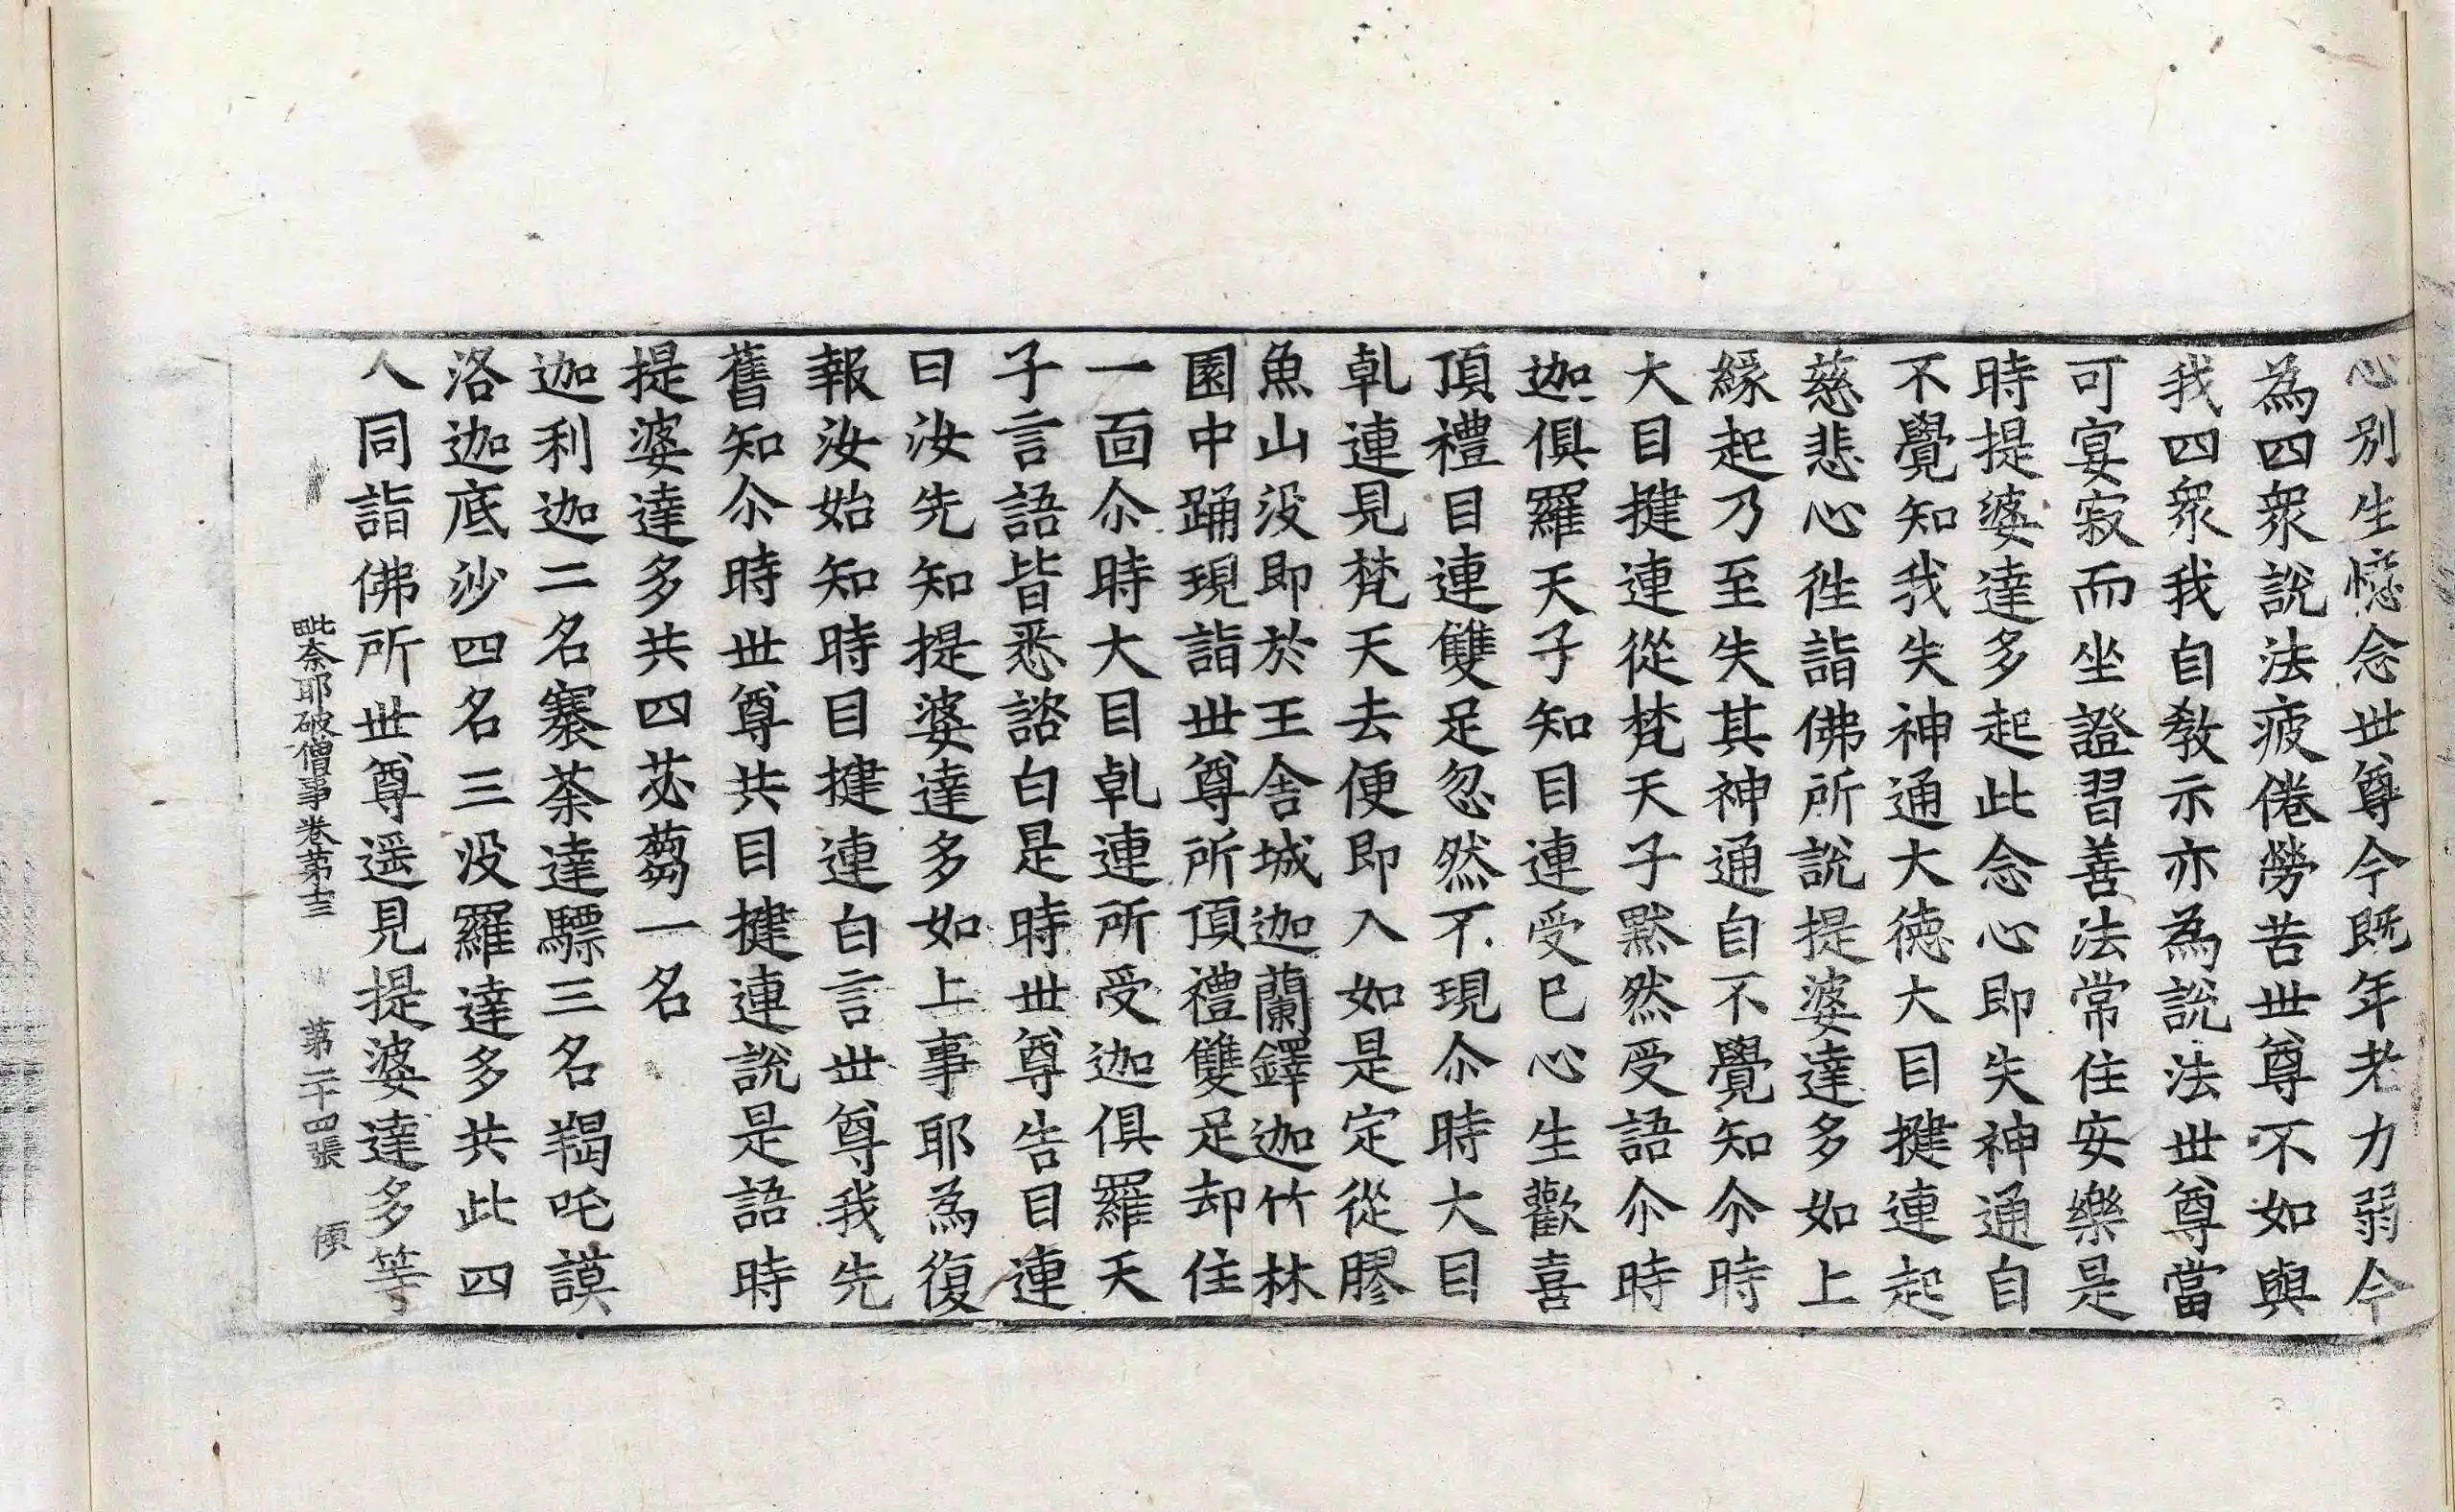 心別生憶念丗尊今既年老力弱今
為四衆說法疲倦勞苦丗尊不如與
我四衆我自教示亦為說法丗尊當
可宴寂而坐證習善法常住安樂是
時提婆達多起此念心即失神通自
不覺知我失神通大徳大目揵連起
慈悲心徃詣佛所說提婆達多如上
緣起乃至失其神通自不覺知尒時
大目揵連從梵天子黙然受語尒時
迦俱羅天子知目連受已心生歡喜
頂禮目連雙足忽然不現尒時大目
乹連見梵天去便即入如是定從膠
魚山没即於王舎城迦蘭鐸迦竹林
園中踊現詣丗尊所頂禮雙足却住
一面尒時大目乹連所受迦俱羅天
子言語皆悉諮白是時丗尊告目連
曰汝先知提婆達多如上事耶為復
報汝始知時目揵連白言丗尊我先
舊知尒時丗尊共目揵連說是語時
提婆達多共四苾蒭一名
迦利迦二名褰荼達驃三名羯吒謨
洛迦底沙四名三没羅達多共此四
人同詣佛所丗尊遥見提婆達多等
毗奈耶破僧事卷第十三 第二十四張 傾